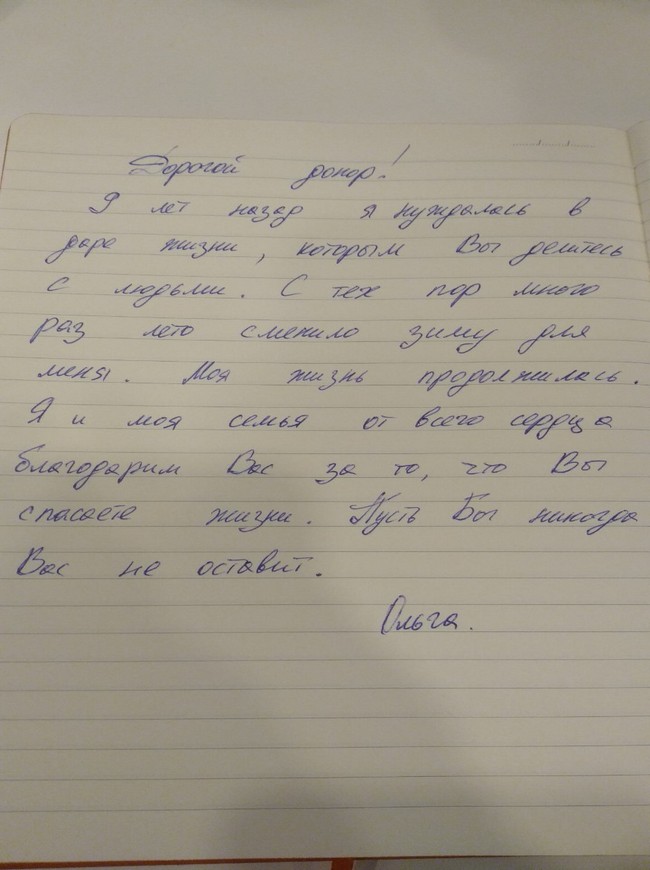 Дорогой донор!
9 лет назад я нуждалась в
даре жизни, которым Вы делитесь
с людьми. С тех пор много
раз лето сменило зиму для
меня. Моя жизнь продолжилась.
Я и моя семья от всего сердца
благодарим Вас за то, что Вы
спасаете жизни. Пусть Бог никогда
Вас не оставит.
Ольга.